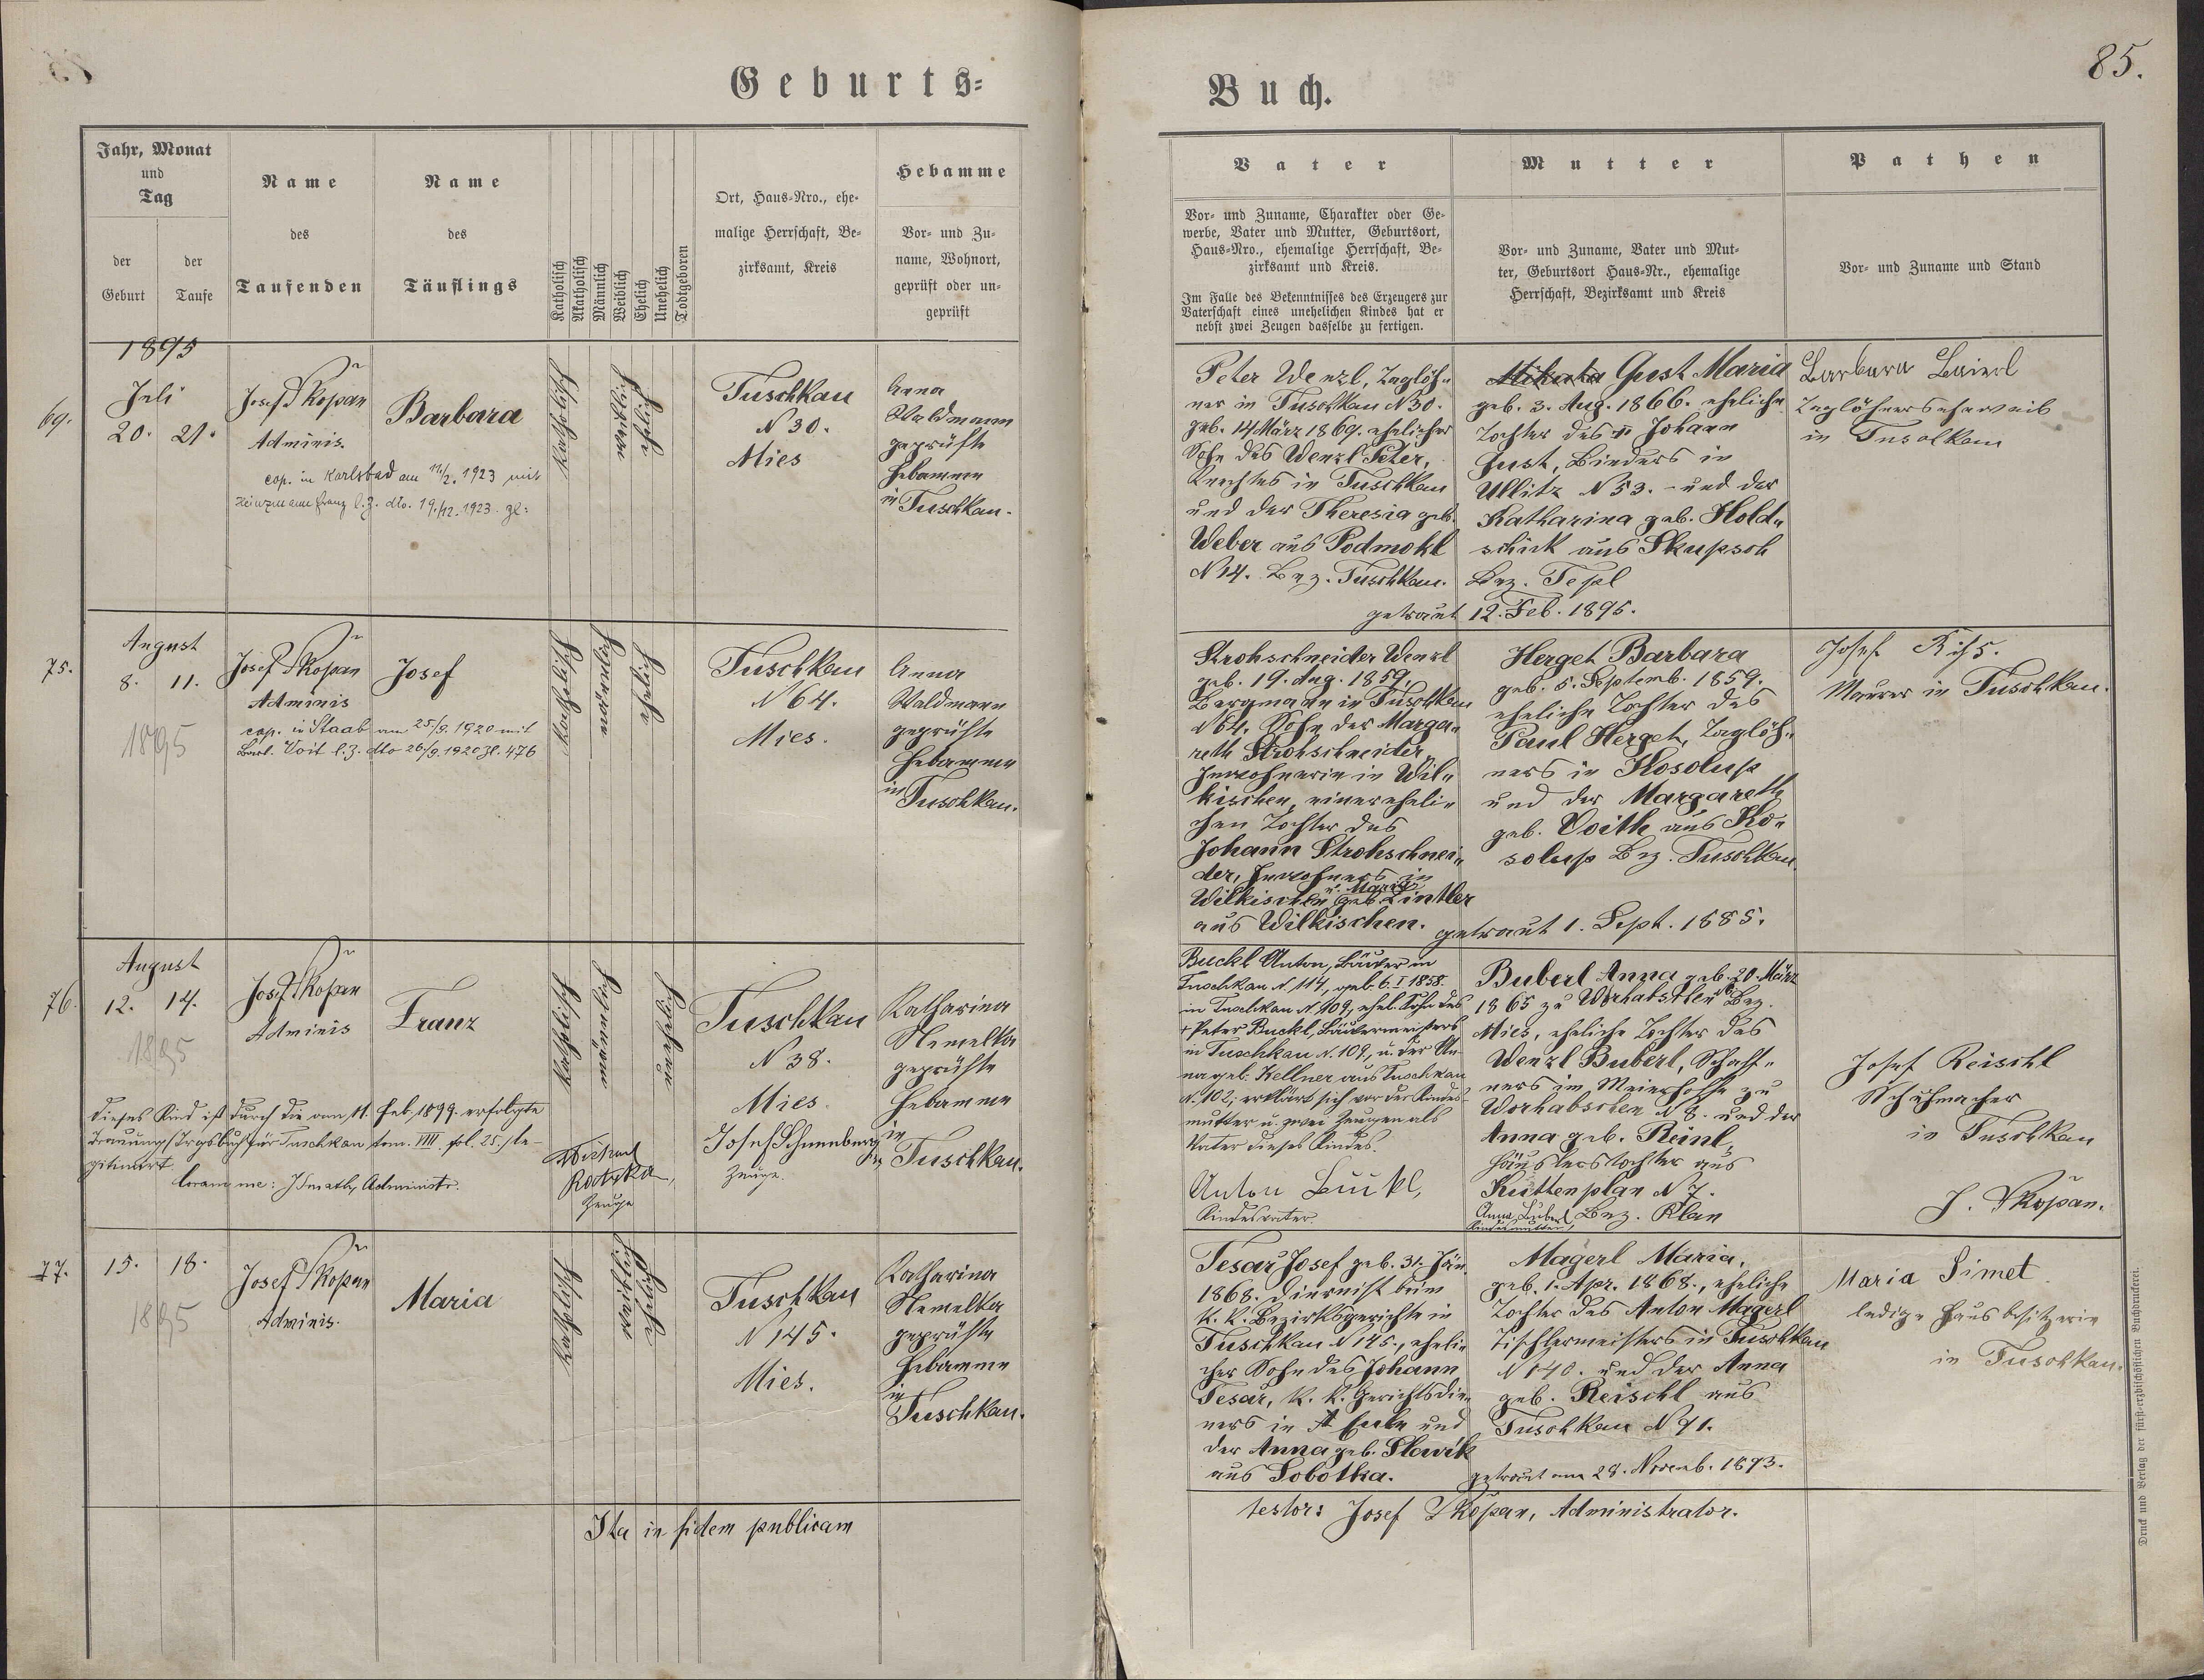 Geburts=
Buch.
85.
Jahr, Monat
und
Tag
der
Geburt
der
Taufe
Name
des
Taufenden
Name
des
Täuflings
Katholisch
Akatholisch
Männlich
Weiblich
Ehelich
Unehelich
Todtgeboren
Ort, Haus-Nro., ehe-
malige Herrschaft, Be-
zirksamt, Kreis
Hebamme
Vor- und Zu-
name, Wohnort,
geprüft oder un-
geprüft
Vater
Vor- und Zuname, Charakter oder Ge-
werbe, Vater und Mutter, Geburtsort,
Haus-Nro., ehemalige Herrschaft, Be-
zirksamt und Kreis.
Im Falle des Bekenntnisses des Erzeugers zur
Vaterschaft eines unehelichen Kindes hat er
nebst zwei Zeugen dasselbe zu fertigen.
Mutter
Vor- und Zuname, Vater und Mut-
ter, Geburtsort Haus-Nr., ehemalige
Herrschaft, Bezirksamt und Kreis
Pathen
Vor- und Zuname und Stand
1895
69.
Juli
20. 21.
Josef Skopan
Adminis.
cop. in Karlsbad am 11/2. 1923 mit
Heinzmann Franz l. Z. dto. 19./12. 1923. Zl:
Barbara
katholisch
weiblich
ehelich
Tuschkau
N 30.
Mies
Anna
Waldmann
geprüfte
Hebamme
in Tuschkau.
Peter Wenzl, Taglöh„
ner in Tuschkau N 30.
geb. 14 März 1869. ehelicher
Sohn des Wenzl Peter,
Knechtes in Tuschkau
und der Theresia geb.
Weber aus Podmokl
N 14. Bez. Tuschkau.
Gust Maria
geb. 3. Aug. 1866. eheliche
Tochter des Johann
Gust, Binders in
Ullitz N 53. - und der
Katharina geb. Hold„
schick aus Skupsch
Bez. Tepl
getraut 12. Feb. 1895.
Barbara Baierl
Taglöhnerseheweib
in Tuschkau
75.
August
8. 11.
1895
Josef Skopan
Adminis
cop. in Staab am 25./9. 1920 mit
Barb. Voit l. Z. dto 26/9. 1920 Zl. 476
Josef
katholisch
männlich
ehelich
Tuschkau
N 64.
Mies.
Anna
Waldmann
geprüfte
Hebamme
in Tuschkau.
Strohschneider Wenzl
geb. 19. Aug. 1859.
Bergmann in Tuschkau
N 64. Sohn der Marga„
reth Strohschneider,
Inwohnerin in Wil„
kischen, einer eheli„
chen Tochter des
Johann Strohschnei„
der, Inwohners in
Wilkischen u. Maria geb. Zintler
aus Wilkischen.
Herget Barbara
geb. 5. Septemb. 1859.
eheliche Tochter des
Paul Herget, Taglöh„
ners in Kosolup
und der Margareth
geb. Voith aus Ko„
solup Bez. Tuschkau.
getraut 1. Sept. 1885.
Josef Kiss.
Maurer in Tuschkau.
76.
August
12. 14.
1895
Josef Skopan
Adminis
Franz
katholisch
männlich
unehelich
Tuschkau
N 38.
Mies.
Katharina
Nemelka
geprüfte
Hebamme
in
Tuschkau.
Dieses Kind ist durch die am 11. Feb. 1899. erfolgte
Trauung, Trgsbuch für Tuschkau tom. VIII. fol. 25., le-
gitimirt
Coram me: Administr.
Zeuge
Josef Schneeberg
Zeuge.
Buckl Anton, Bäcker in
Tuschkau N. 114, geb. 6. I 1858.
in Tuschkau N. 109, ehel. Sohn des
+ Peter Buckl, Bäckermeisters
in Tuschkau N. 109, u. der An-
na geb. Kellner aus Tuschkau
N. 102; erklärt sich vor der Kindes-
mutter u. zwei Zeugen als
Vater dieses Kindes.
Anton Buckl,
Kindesvater.
Buberl Anna geb. 20. März
1865 zu Worhabschen N 8 Bez.
Mies, eheliche Tochter des
Wenzl Buberl, Schaff„
ners im Meierhoffe zu
Worhabschen N 8. und der
Anna geb. Reinl,
Häuslerstochter aus
Kuttenplan N 7.
Bez. Plan
Anna Buberl
Kindesmutter
Josef Reischl
Schuhmacher
in Tuschkau
J. Skopan.
77.
15. 18.
1895
Josef Skopan
Adminis.
Maria
katholisch
weiblich
ehelich
Tuschkau
N 145.
Mies.
Katharina
Nemelka
geprüfte
Hebamme
in
Tuschkau.
Tesař Josef geb. 31. Jän.
1868. Diurnist beim
k. k. Bezirksgerichte in
Tuschkau N 145., eheli„
cher Sohn des Johann
Tesař, k. k. Gerichtsdie„
ners in und
der Anna geb. Slavik
aus Sobotka.
Magerl Maria,
geb. 1. Apr. 1868., eheliche
Tochter des Anton Magerl
Tischlermeisters in Tuschkau
N 140. und der Anna
geb. Reischl aus
Tuschkau N 91.
getraut am 28. Novemb. 1893.
Maria Simet
ledige Hausbesitzerin
in Tuschkau.
Ita in fidem publicam
testor: Josef Skopan, Administrator.
Druck und Verlag der fürst-erzbischöflichen Buchdruckerei.